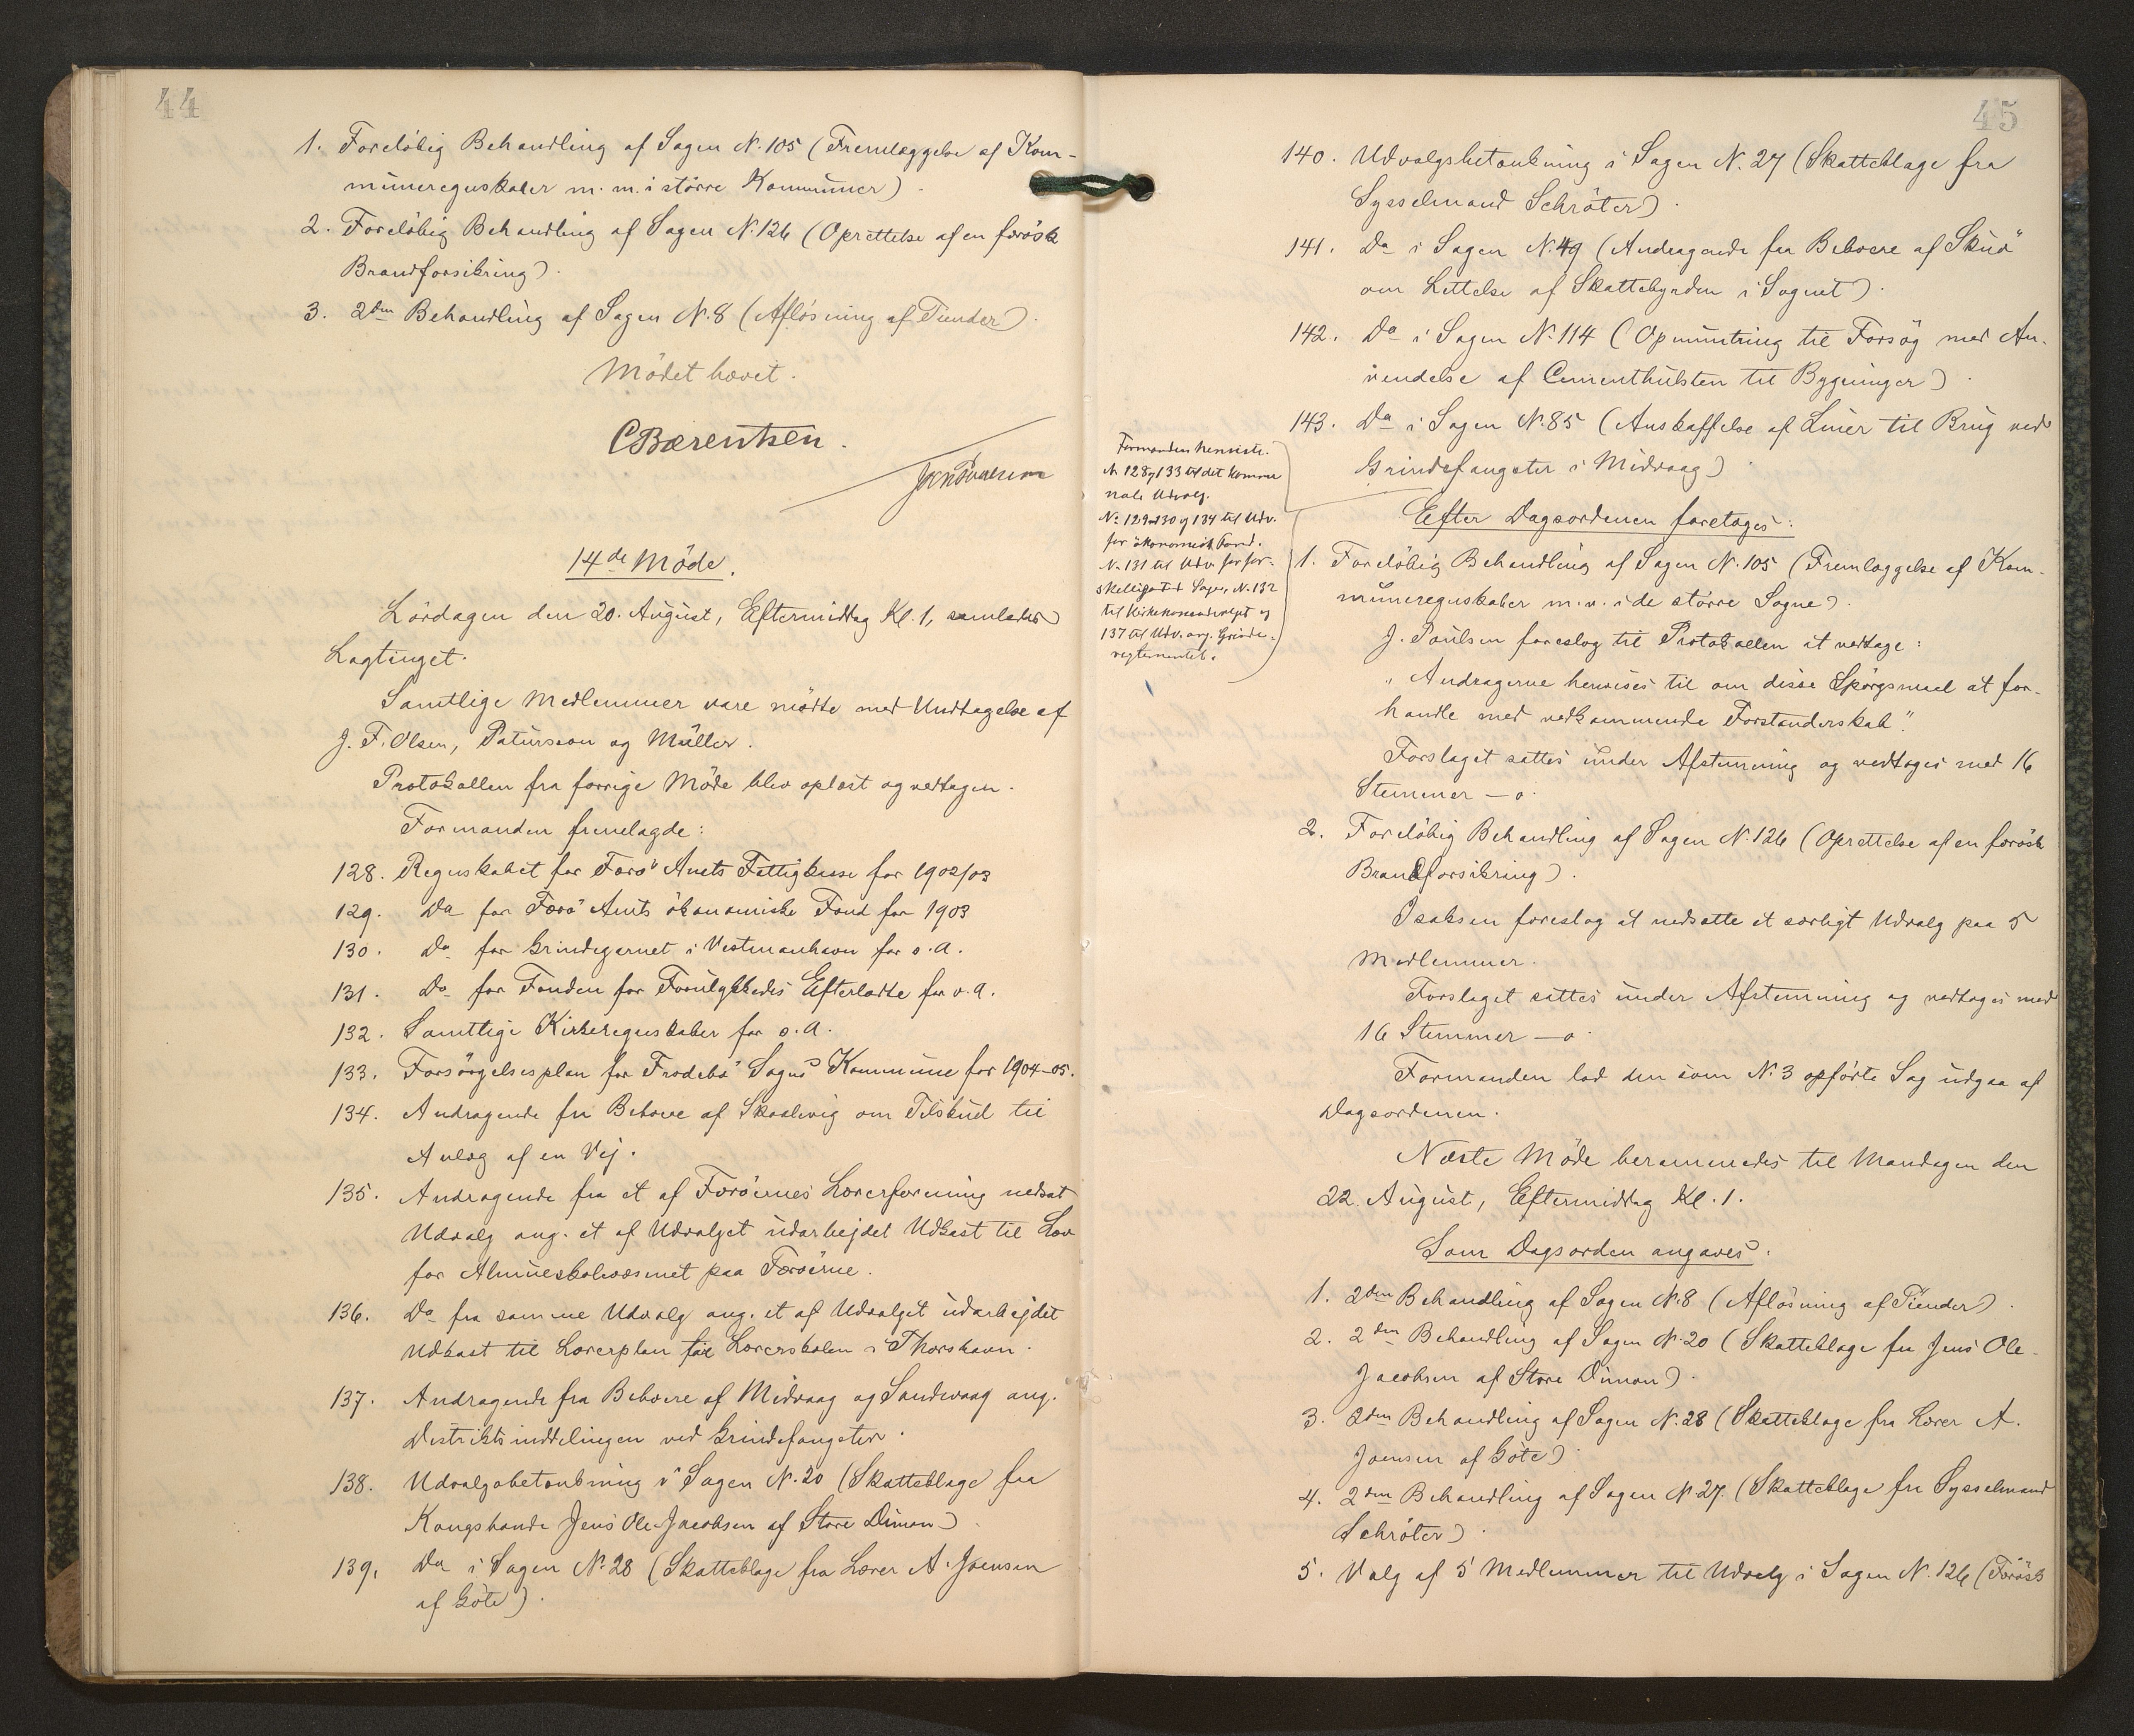 44
1. Foreløbig Behandling af Sagen N. 105 (Fremlæggelse af Kom-
muneregnskaber m. m. i større Kommuner).
2. Foreløbig Behandling af Sagen N. 126 (Oprettelse af en færøsk
Brandforsikring).
3. 2den Behandling af Sagen N. 8 (Afløsning af Tiender).
Mødet hævet.
C Bærentsen.
14de Møde.
Lørdagen den 20. August, Eftermiddag Kl. 1, samledes
Lagtinget.
Samtlige Medlemmer vare mødte med Undtagelse af
J. F. Olsen, Patursson og Müller.
Protokollen fra forrige Møde blev oplæst og vedtagen.
Formanden fremlagde:
128. Regnskabet for Færø Amts Fattigkasse for 1902/03
129. Do for Færø Amts økonomiske Fond for 1903
130. Do for Grindegarnet i Vestmanhavn for s. A.
131. Do for Fonden for Forulykkedes Efterladte for s. A.
132. Samtlige Kirkeregnskaber for s. A.
133. Forsørgelsesplan for Frodebø Sogns Kommune for 1904-05.
134. Andragende fra Beboere af Skaalevig om Tilskud til
Anlæg af en Vej.
135. Andragende fra et af Færøernes Lærerforening nedsat
Udvalg ang. et af Udvalget udarbejdet Udkast til Lov
for Almueskolevæsenet paa Færøerne.
136. Do fra samme Udvalg ang. et af Udvalget udarbejdet
Udkast til Lærerplan for Lærerskolen i Thorshavn.
137. Andragende fra Beboere af Midvaag og Sandevaag ang.
Distriktsinddelingen ved Grindefangster.
138. Udvalgsbetænkning i Sagen N. 20 (Skatteklage fra
Kongsbonde Jens Ole Jacobsen af Store Dimon)
139. Do i Sagen N. 28 (Skatteklage fra Lærer A. Joensen
af Gøte).
45
140. Udvalgsbetænkning i Sagen N. 27 (Skatteklage fra
Sysselmand Schrøter).
141. Do i Sagen N. 49 (Andragende fra Beboere af Skuø
om Lettelse af Skattebyrden i Sognet).
142. Do i Sagen N. 114 (Opmuntring til Forsøg med An-
vendelse af Cementhulsten til Bygninger).
143. Do i Sagen N. 85 (Anskaffelse af Liner til Brug ved
Grindefangster i Midvaag).
Formanden henviste
N. 128 og 133 til det kommu
nale Udvalg.
No 129 130 og 134 til Udv.
for økonomisk Fond.
N. 131 til Udv. for for-
skelligartede Sager, N. 132
til Kirkekasseudvalget og
137 til Udv. ang. Grinde-
reglementet.
Efter Dagsordenen foretoges:
1. Foreløbig Behandling af Sagen N. 105 (Fremlæggelse af Kom-
muneregnskaber m. v. i de større Sogne).
J. Poulsen foreslog til Protokollen at vedtage:
"Andragerne henvises til om disse Spørgsmaal at for-
handle med vedkommende Forstanderskab".
Forslaget sattes under Afstemning og vedtoges med 16
Stemmer — 0.
2. Foreløbig Behandling af Sagen N. 126 (Oprettelse af en færøsk
Brandforsikring).
Isaksen foreslog at nedsætte et særligt Udvalg paa 5
Medlemmer.
Forslaget sattes under Afstemning og vedtoges med
16 Stemmer — 0.
Formanden lod den som N. 3 opførte Sag udgaa af
Dagsordenen.
Næste Møde berammedes til Mandagen den
22. August, Eftermiddag Kl. 1.
Som Dagsorden angaves:
1. 2den Behandling af Sagen N. 8 (Afløsning af Tiender).
2. 2den Behandling af Sagen N. 20 (Skatteklage fra Jens Ole
Jacobsen af Store Dimon).
3. 2den Behandling af Sagen N. 28 (Skatteklage fra Lærer A.
Joensen af Gøte).
4. 2den Behandling af Sagen N. 27. (Skatteklage fra Sysselmand
Schrøter).
5. Valg af 5 Medlemmer til Udvalg i Sagen N. 126 (Færøsk